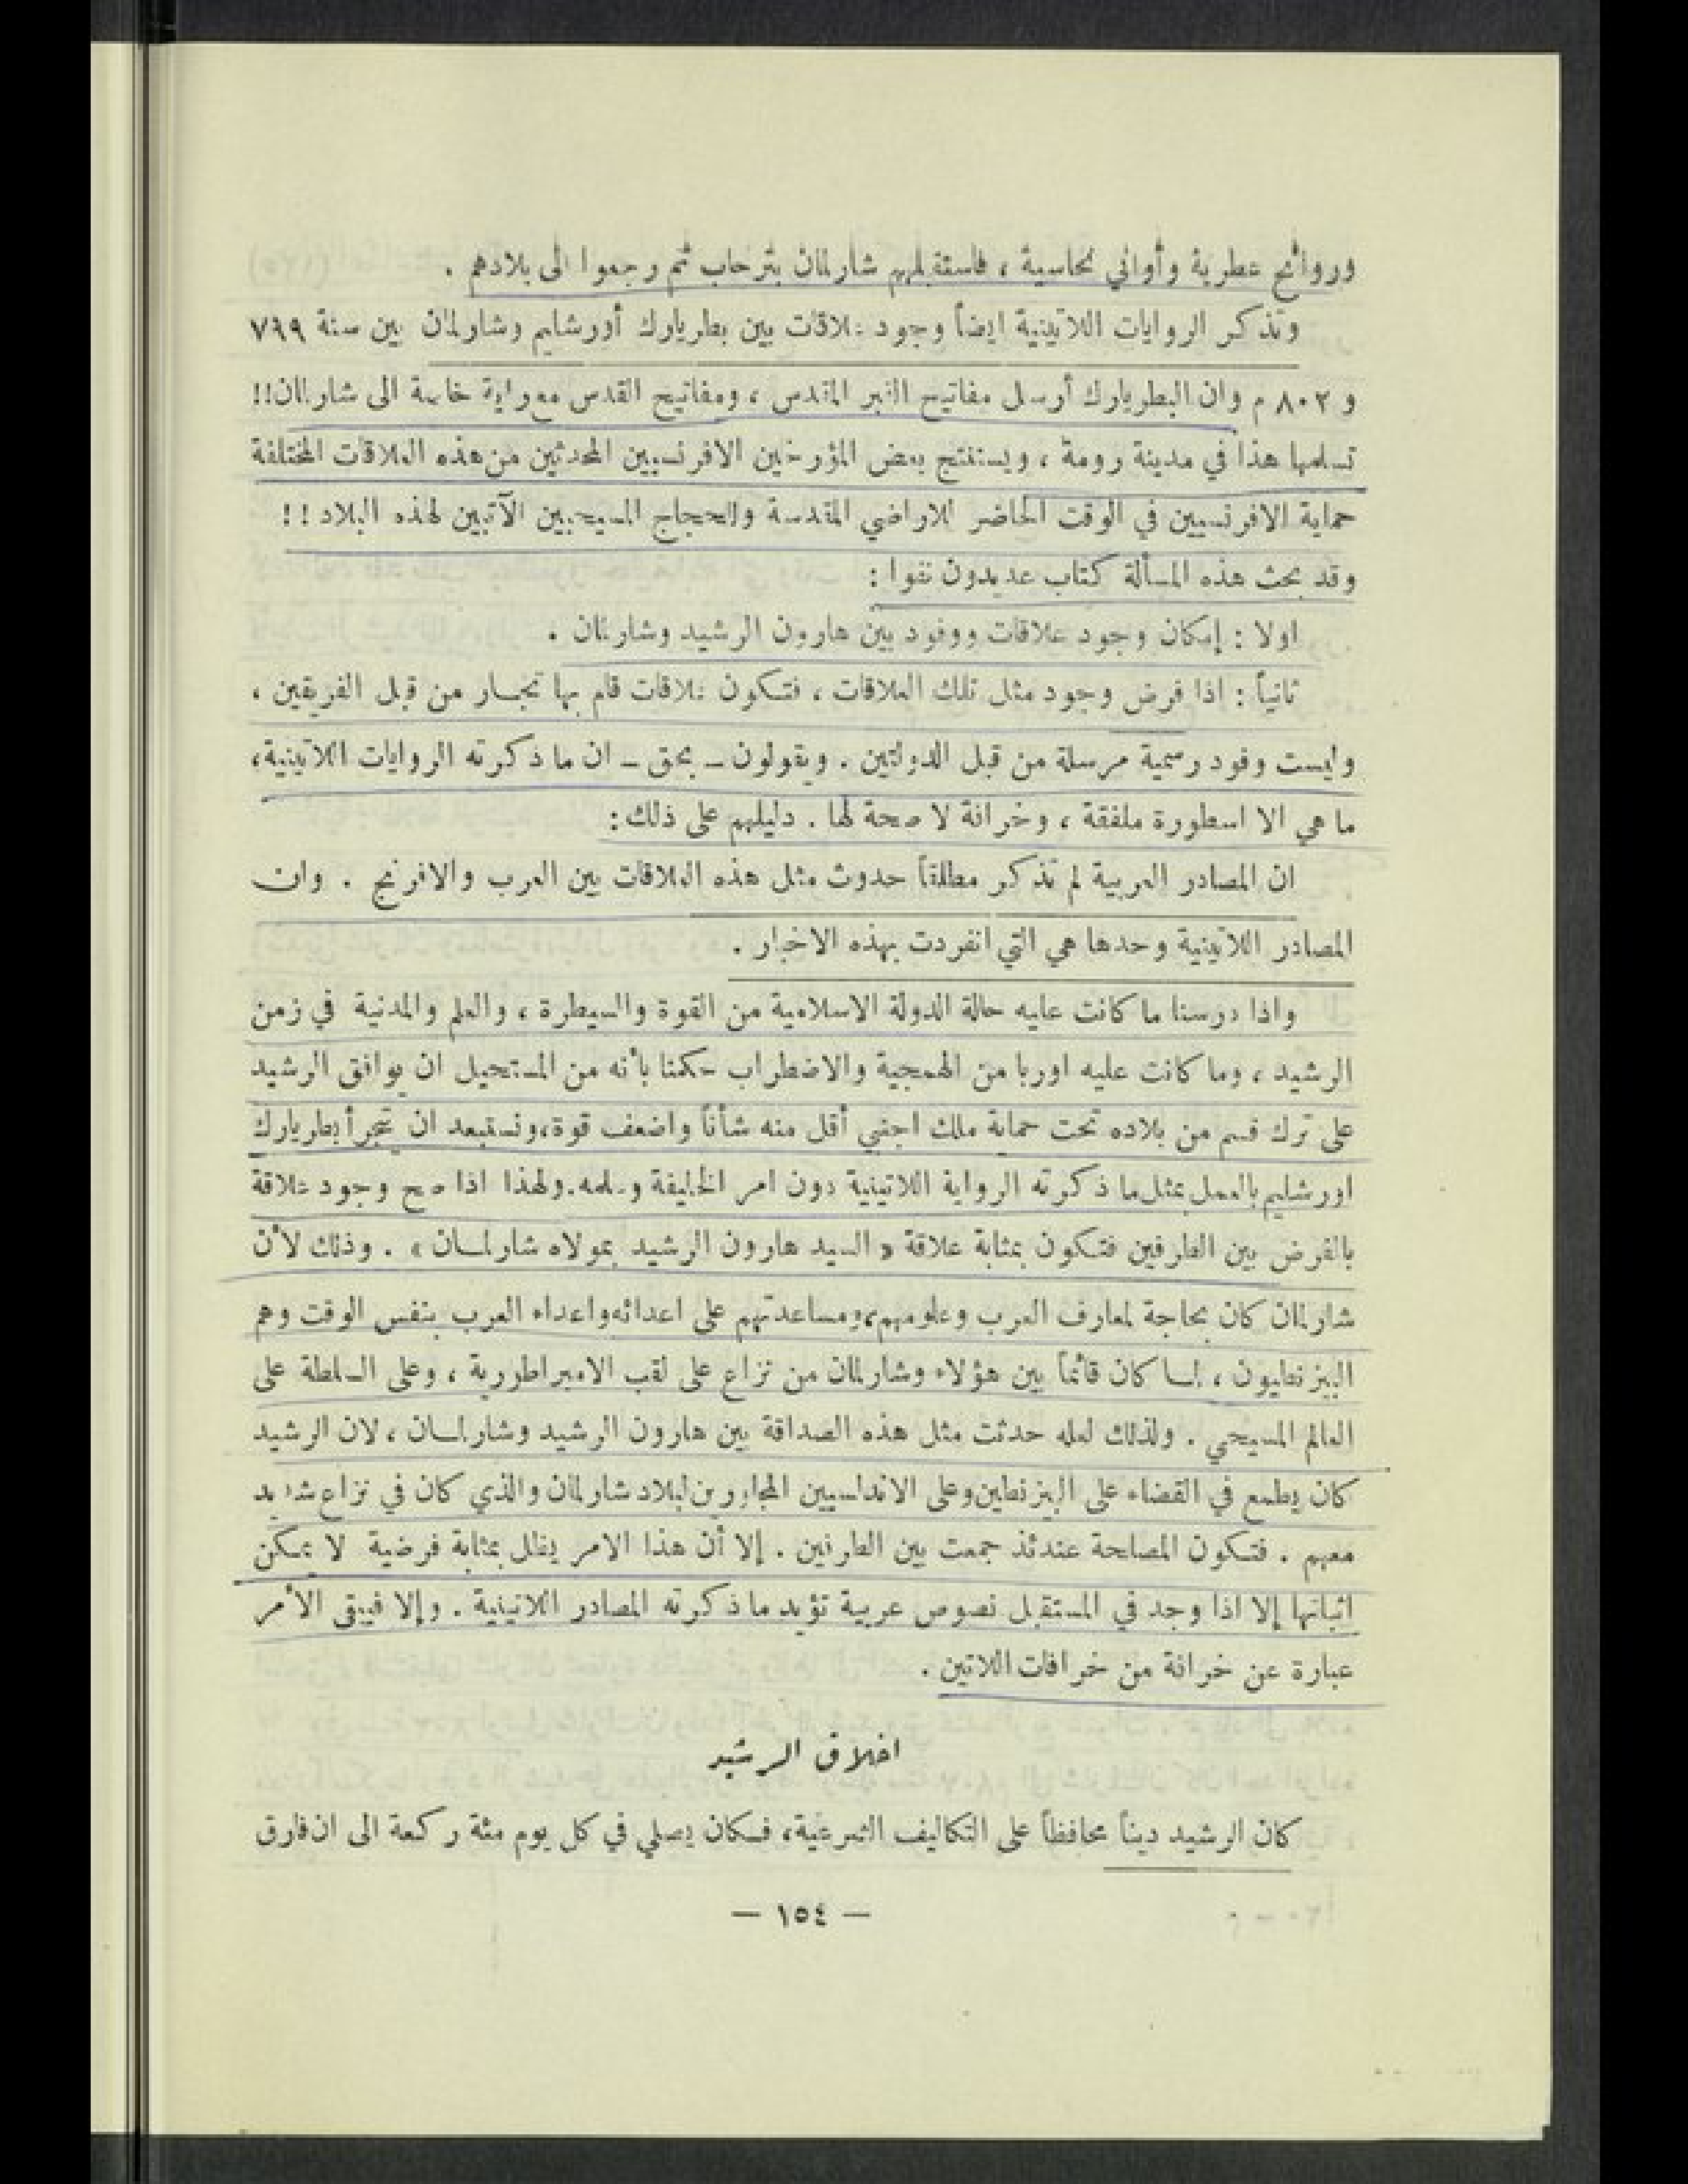 وروائح عطرية وأواني نحاسية ، فاستقبلهم شارلمان بترحاب ثم رجعوا الى بلادهم .
وتذكر الروايات اللاتينية ايضاً وجود علاقات بين بطريارك أورشليم وشارلمان بين سنة ٧٩٩
و ٨٠٢ م وان البطريارك أرسل مفاتيح القبر المقدس ، ومفاتيح القدس مع راية خاصة الى شارلمان!!
تسلمها هذا في مدينة رومة ، ويستنتج بعض المؤرخين الافرنسيين المحدثين من هذه العلاقات المختلفة
حماية الافرنسيين في الوقت الحاضر للاراضي المقدسة وللحجاج المسيحيين الآتيين لهذه البلاد !!
وقد بحث هذه المسألة كتاب عديدون نفوا :
اولا : إمكان وجود علاقات ووفود بين هارون الرشيد وشارلمان .
ثانياً : اذا فرض وجود مثل تلك العلاقات ، فتكون علاقات قام بها تجار من قبل الفريقين ،
وليست وفود رسمية مرسلة من قبل الدولتين . ويقولون ــ بحق ــ ان ما ذكرته الروايات اللاتينية،
ما هي الا اسطورة ملفقة ، وخرافة لا صحة لها . دليلهم على ذلك :
ان المصادر العربية لم تذكر مطلقاً حدوث مثل هذه العلاقات بين العرب والافرنج . وان
المصادر اللاتينية وحدها هي التي انفردت بهذه الاخبار .
واذا درسنا ما كانت عليه حالة الدولة الاسلامية من القوة والسيطرة ، والعلم والمدنية في زمن
الرشيد ، وما كانت عليه اوربا من الهمجية والاضطراب حكمنا بأنه من المستحيل ان يوافق الرشيد
على ترك قسم من بلاده تحت حماية ملك اجنبي أقل منه شأناً واضعف قوة،ونستبعد ان تجرأ بطريارك
اورشليم بالعمل بمثل ما ذكرته الرواية اللاتينية دون امر الخليفة وعلمه.ولهذا اذا صح وجود علاقة
بالفرض بين الطرفين فتكون بمثابة علاقة « السيد هارون الرشيد بمولاه شارلمان » . وذلك لأن
شارلمان كان بحاجة لمعارف العرب وعلومهم،ومساعدتهم على اعدائه واعداء العرب بنفس الوقت وهم
البيزنطيون ، لما كان قائماً بين هؤلاء وشارلمان من نزاع على لقب الامبراطورية ، وعلى السلطة على
العالم المسيحي . ولذلك لعله حدثت مثل هذه الصداقة بين هارون الرشيد وشارلمان ، لان الرشيد
كان يطمع في القضاء على البيزنطين وعلى الاندلسيين المجاورين لبلاد شارلمان والذي كان في نزاع شديد
معهم . فتكون المصلحة عندئذ جمعت بين الطرفين . إلا أن هذا الامر يظل بمثابة فرضية لا يمكن
اثباتها إلا اذا وجد في المستقبل نصوص عربية تؤيد ما ذكرته المصادر اللاتينية . وإلا فيبقى الأمر
عبارة عن خرافة من خرافات اللاتين .
اخلاق الرشيد
كان الرشيد ديناً محافظاً على التكاليف الشرعية، فكان يصلي في كل يوم مئة ركعة الى ان فارق
— ١٥٤ —